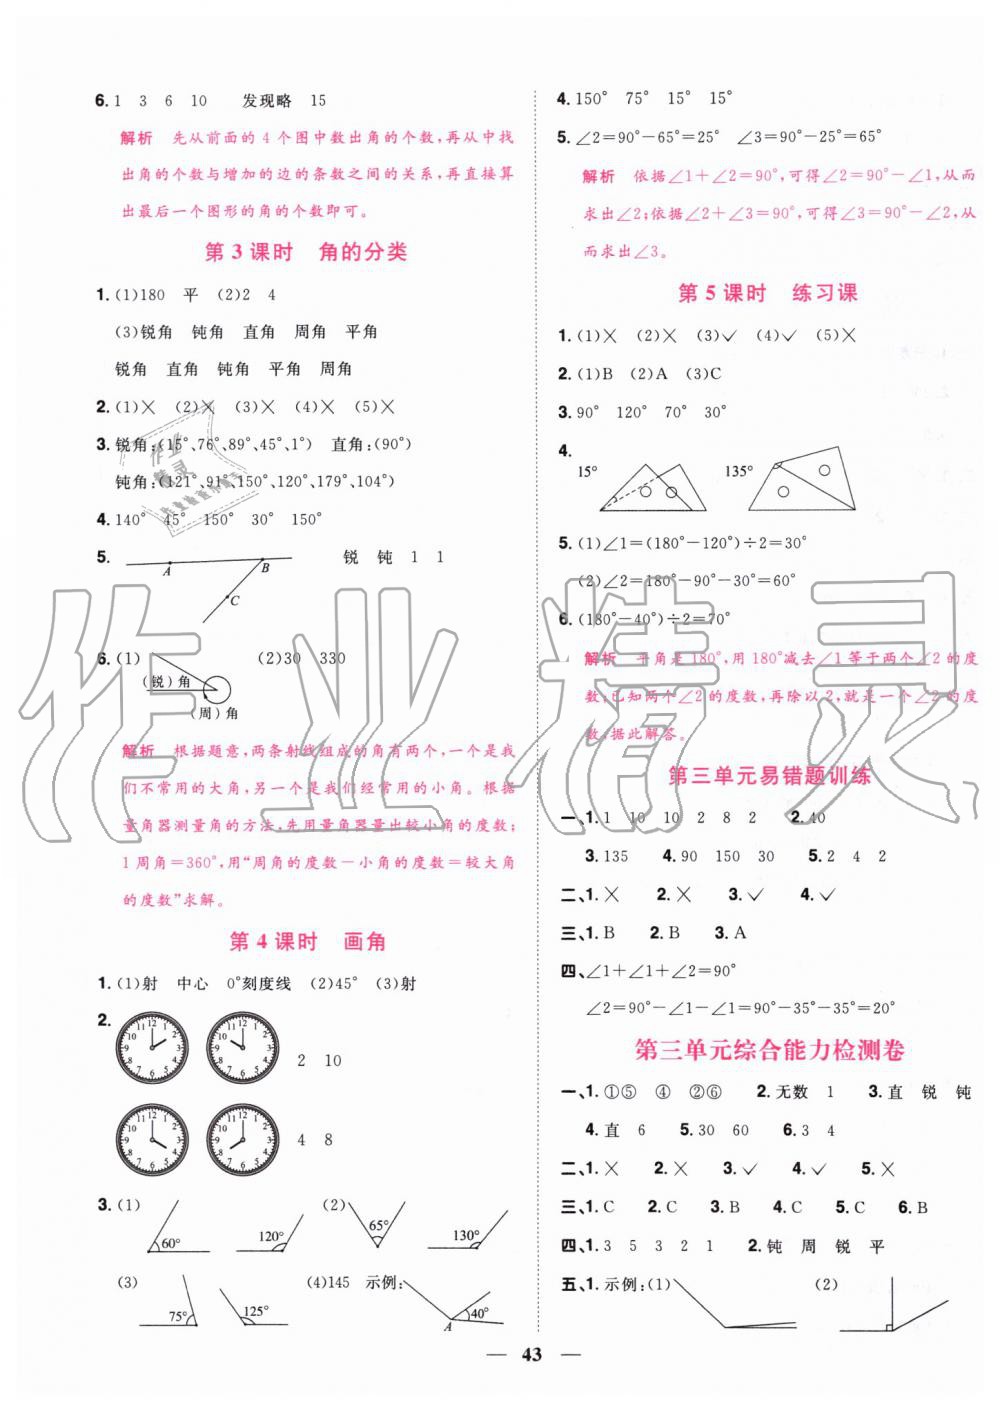 6. 1　3　6　10　发现略　15
解析　先从前面的 4 个图中数出角的个数,再从中找
出角的个数与增加的边的条数之间的关系,再直接算
出最后一个图形的角的个数即可。
第 3 课时　角的分类
1. (1)180　平　(2)2　4
(3)锐角　钝角　直角　周角　平角
锐角　直角　钝角　平角　周角
2. (1)×　(2)×　(3)×　(4)×　(5)×
3. 锐角:(15°、76°、89°、45°、1°)　直角:(90°)
钝角:(121°、91°、150°、120°、179°、104°)
4. 140°　45°　150°　30°　150°
5.　A　B　C　锐　钝　1　1
6. (1)　(2)30　330
(锐)角
(周)角
解析　根据题意,两条射线组成的角有两个,一个是我
们不常用的大角,另一个是我们经常用的小角。根据
量角器测量角的方法,先用量角器量出较小角的度数;
1 周角=360°,用“周角的度数-小角的度数=较大角
的度数”求解。
第 4 课时　画角
1. (1)射　中心　0°刻度线　(2)45°　(3)射
2.　2　10
4　8
3. (1)　60°　120°　(2)　65°　130°
(3)　75°　125°　(4)145　示例:　A　40°
4. 150°　75°　15°　15°
5. ∠2=90°-65°=25°　∠3=90°-25°=65°
解析　依据∠1+∠2=90°,可得∠2=90°-∠1,从而
求出∠2;依据∠2+∠3=90°,可得∠3=90°-∠2,从
而求出∠3。
第 5 课时　练习课
1. (1)×　(2)×　(3)✓　(4)✓　(5)×
2. (1)B　(2)A　(3)C
3. 90°　120°　70°　30°
4.　15°　135°
5. (1)∠1=(180°-120°)÷2=30°
(2)∠2=180°-90°-30°=60°
6. (180°-40°)÷2=70°
解析　平角是180°,用 180°减去∠1等于两个∠2的度
数,已知两个∠2的度数,再除以2,就是一个∠2的度
数,据此解答。
第三单元易错题训练
一、1. 1　10　10　2　8　2　2. 40
3. 135　4. 90　150　30　5. 2　4　2
二、1. ×　2. ×　3. ✓　4. ✓
三、1. B　2. B　3. A
四、∠1+∠1+∠2=90°
∠2=90°-∠1-∠1=90°-35°-35°=20°
第三单元综合能力检测卷
一、1. ①⑤　④　②⑥　2. 无数　1　3. 直　锐　钝
4. 直　6　5. 30　60　6. 3　4
二、1. ×　2. ×　3. ✓　4. ✓　5. ×
三、1. C　2. C　3. B　4. C　5. C　6. B
四、1. 3　5　3　2　1　2. 钝　周　锐　平
五、1. 示例:(1)　(2)
— 43 —
作业精灵